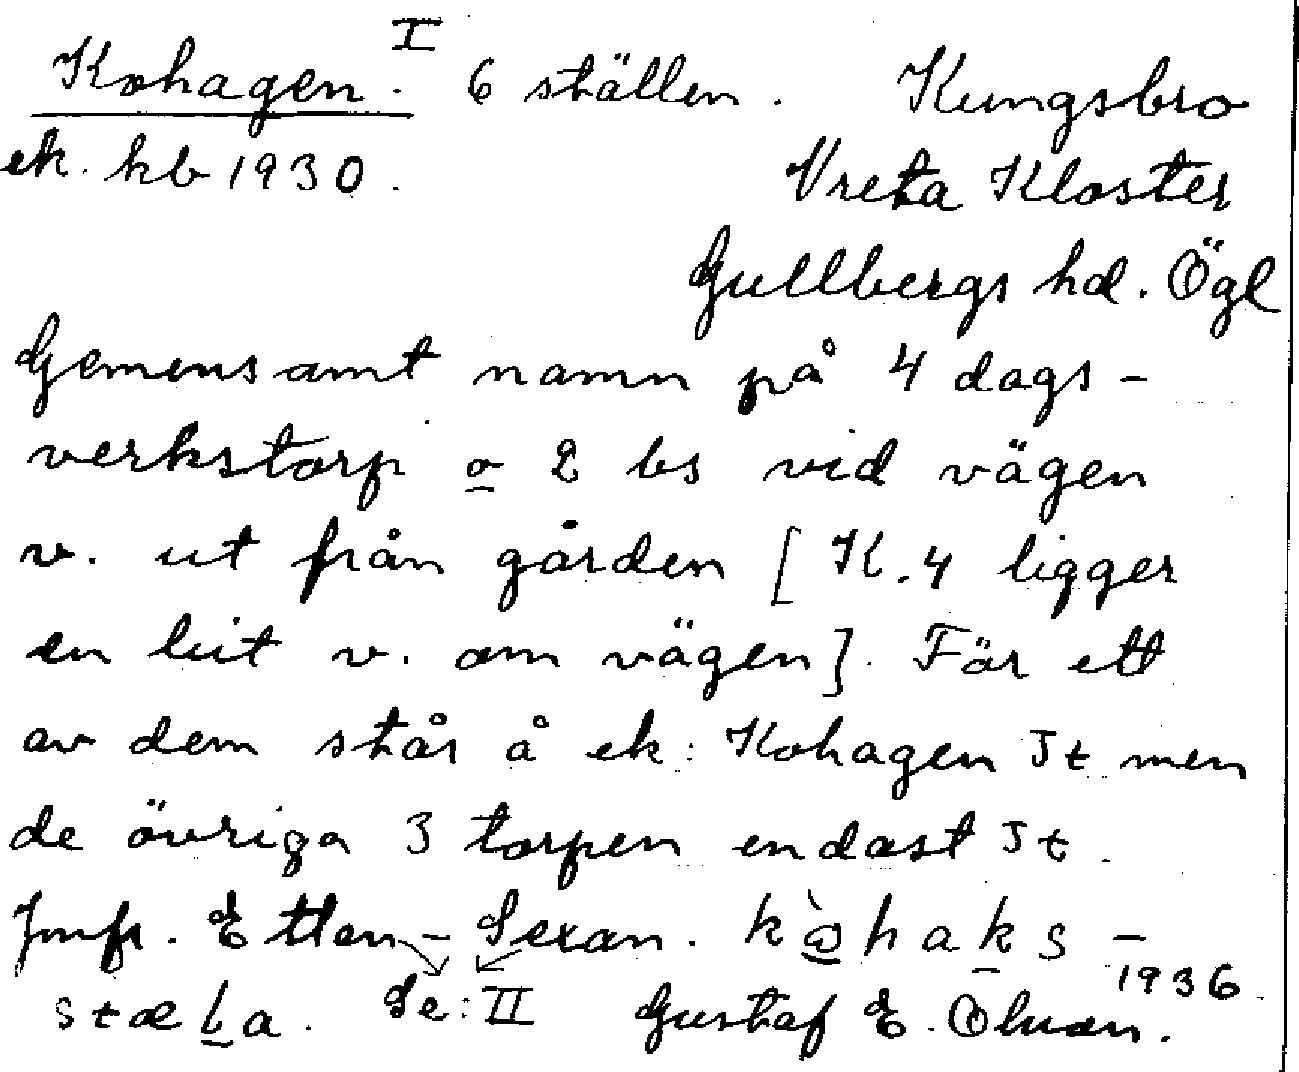 I
Kohagen. 6 ställen. Kungsbro
ek. kb 1930. Vreta Kloster
Gullbergs hd. Ögl
Gemensamt namn på 4 dags-
verkstorp o 2 bs vid vägen
v. ut från gården [K. 4 ligger
en bit v. om vägen]. För ett
av dem står å ek: Kohagen Jt men
de övriga 3 torpen endast Jt.
Jmfr. Ettan - Sexan. kòhaks -
stæla. Se: II Gustaf E. 1936